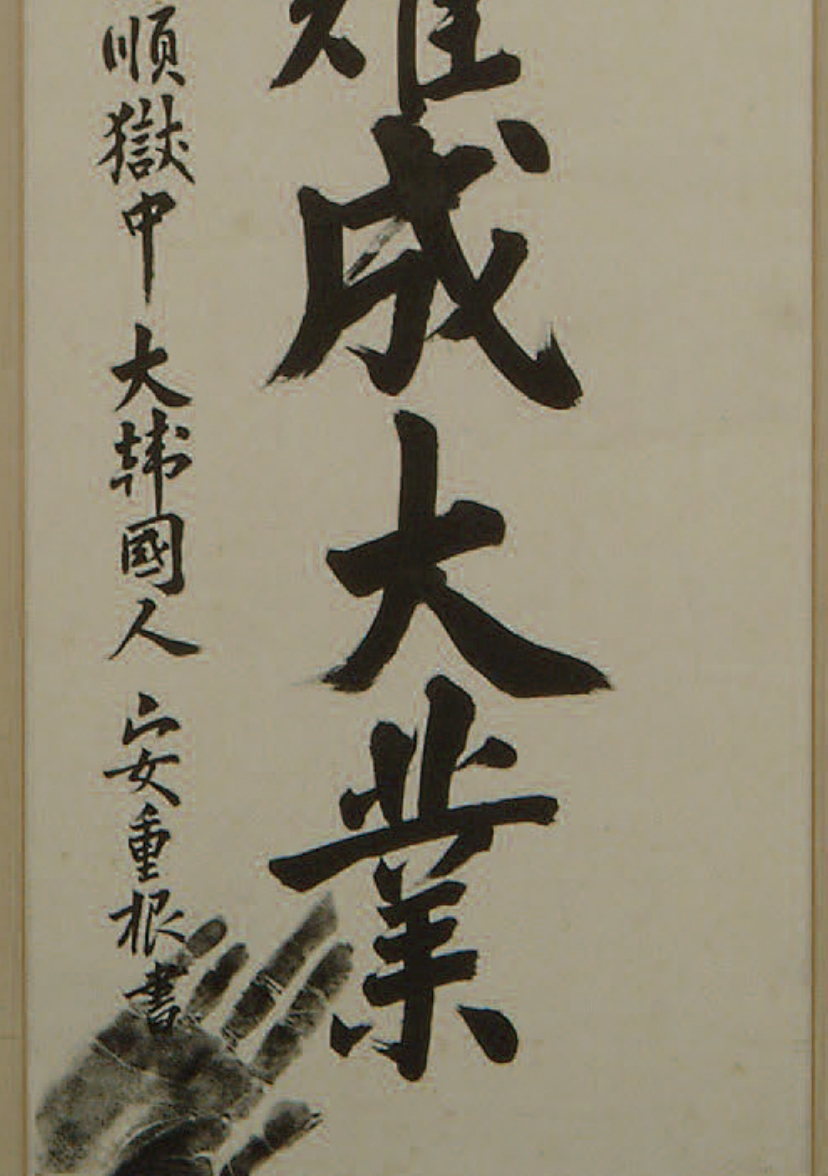 難成大業
順獄中 大韓國人 安重根 書